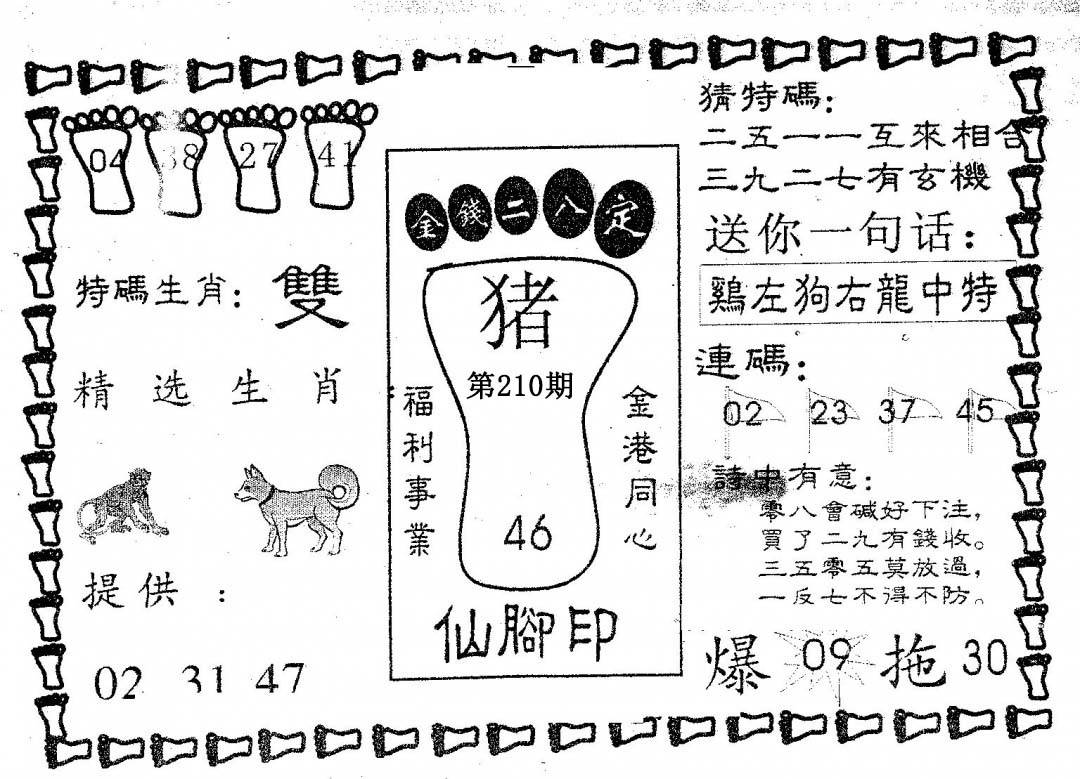 04 38 27 41
特碼生肖：雙
精选生肖
提供：
02 31 47
金錢二八定
猪
第210期
福利事業
金港同心
46
仙腳印
猜特碼：
二五一一互來相合
三九二七有玄機
送你一句话：
鷄左狗右龍中特
連碼：
02 23 37 45
詩中有意：
零八會碱好下注，
買了二九有錢收。
三五零五莫放過，
一反七不得不防。
爆 09 拖 30